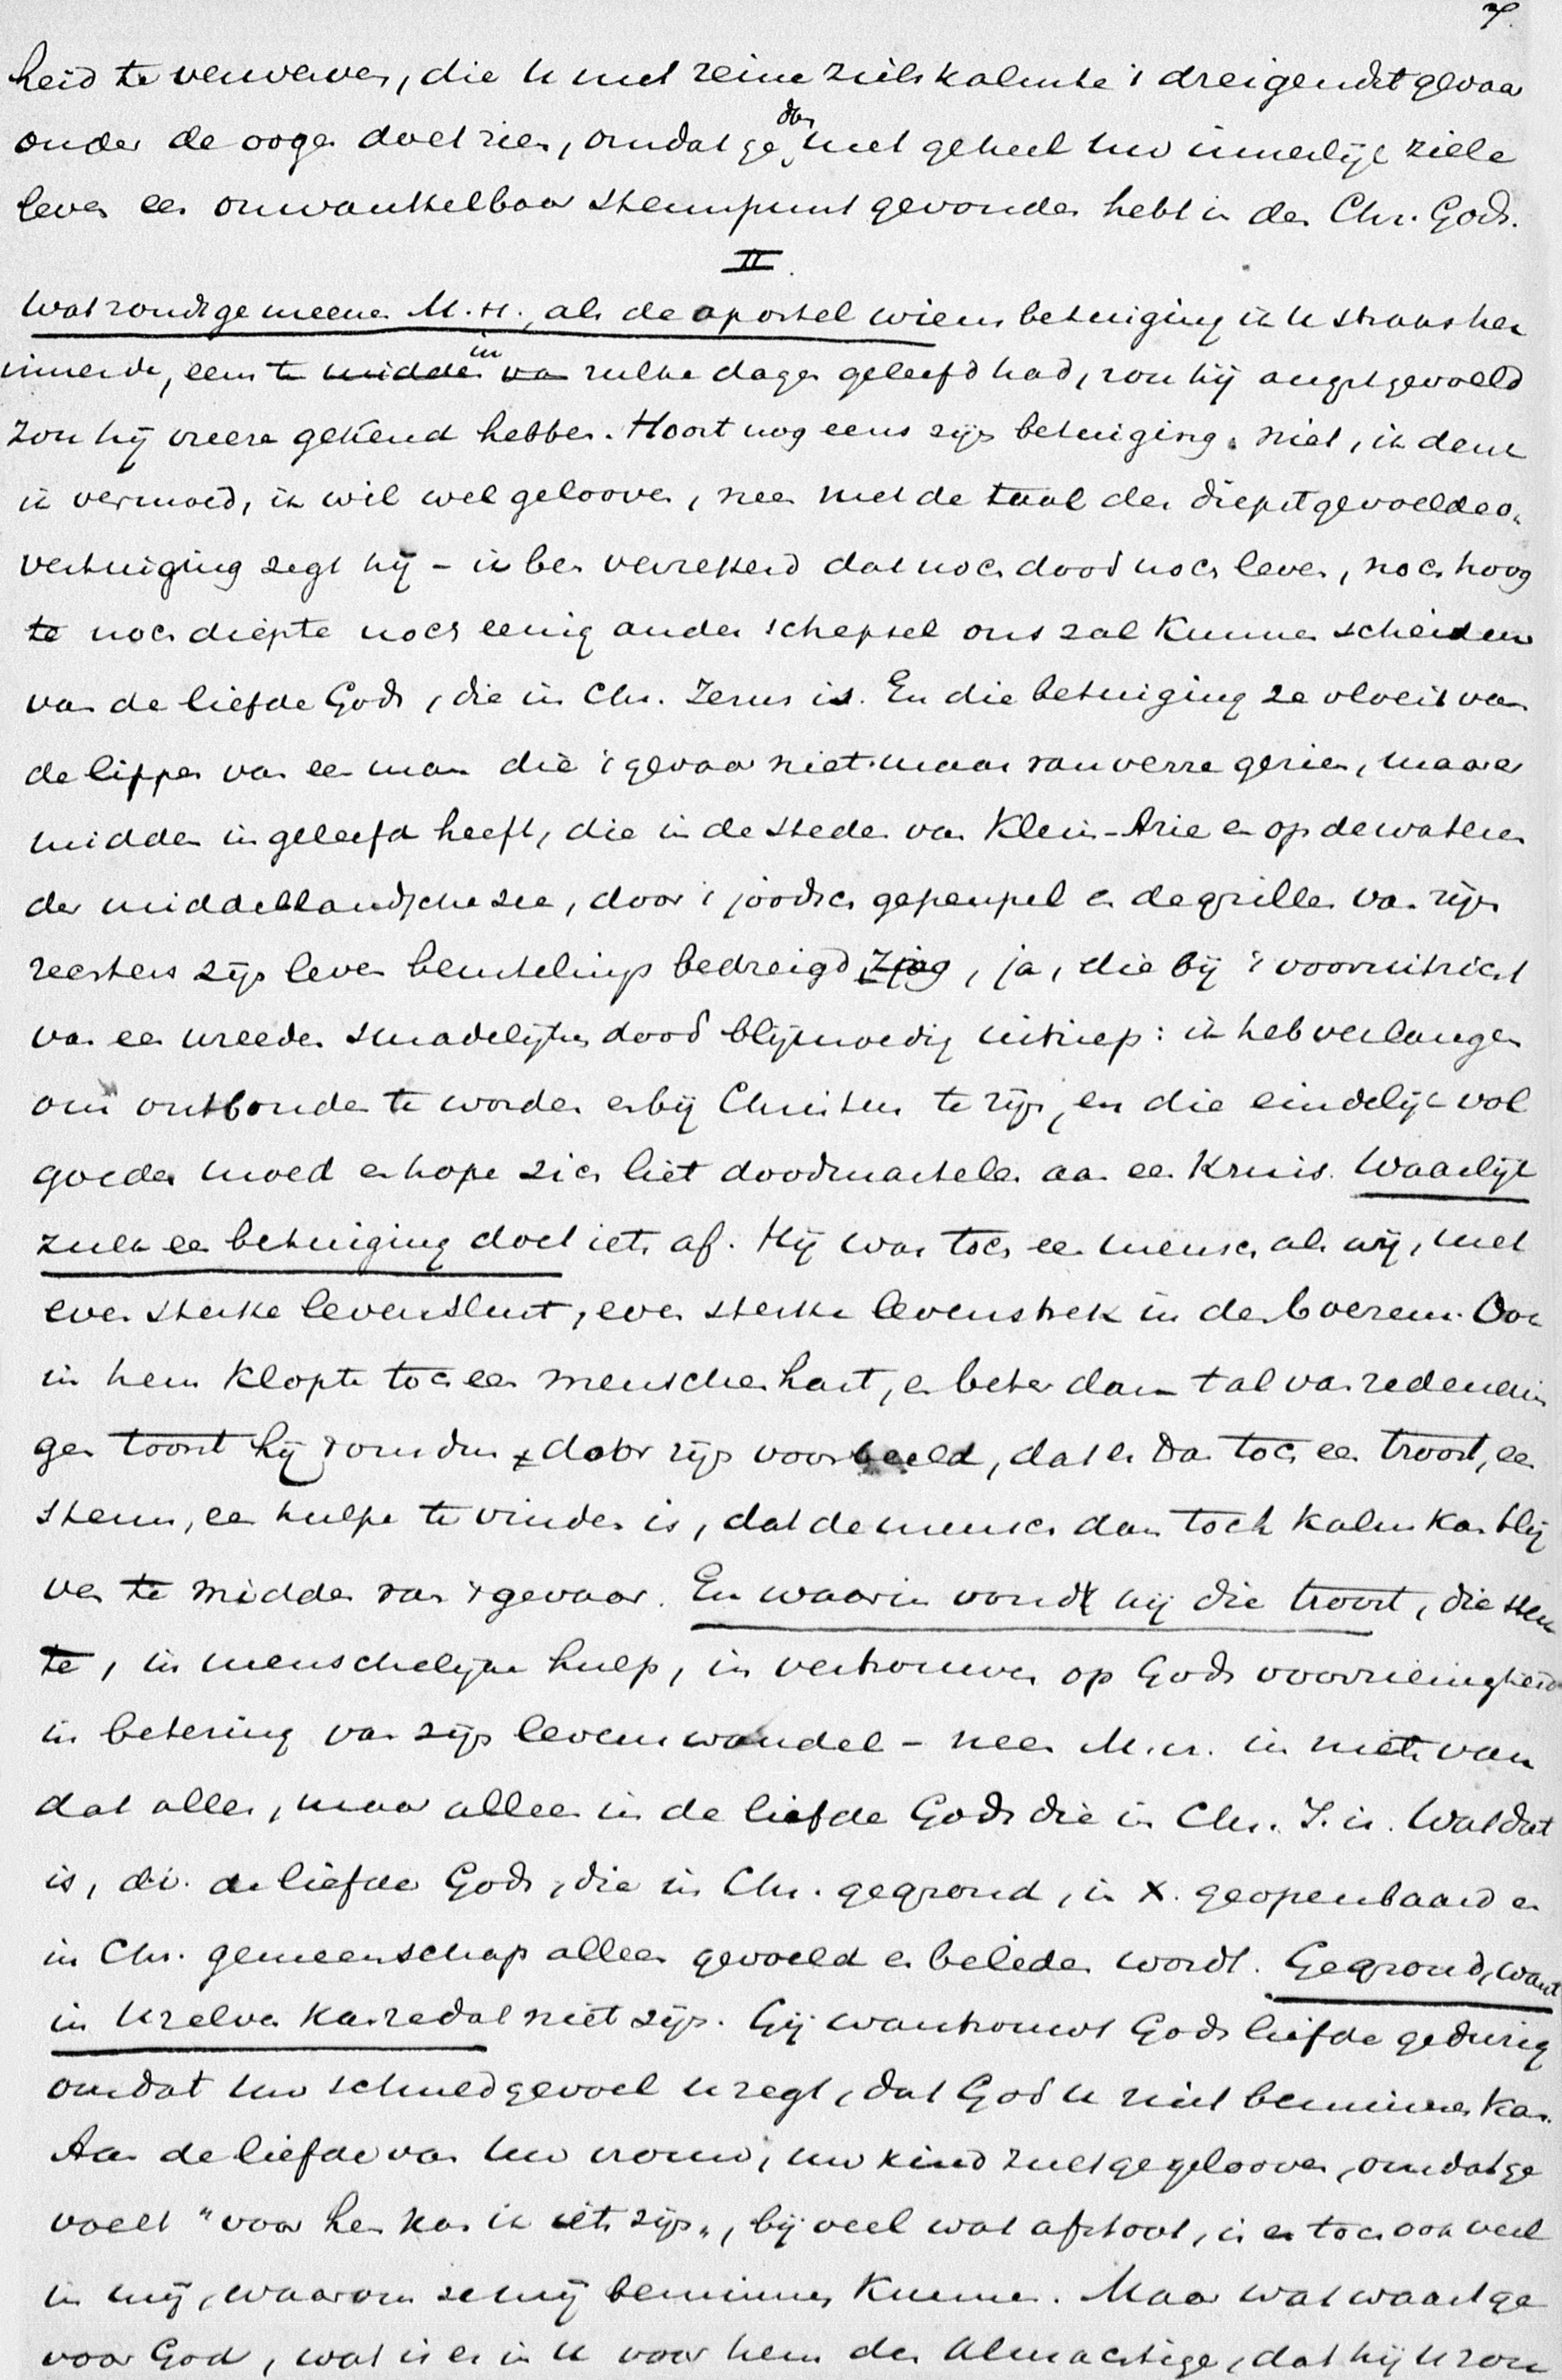 7.
heid te verwerven, die U met reine zielskalmte 't dreigendst gevaar
onder de oogen doet zien, omdat ge dan met geheel uw innerlijk ziele
leven een onwankelbaar steunpunt gevonden hebt in den Chr. Gods.
II.
Wat zoudt ge meenen M. H., als de apostel wiens betuiging ik U straks her
innerde, eens te midden van in zulke dagen geleefd had, zou hij angst gevoeld
zou hij vreeze gekend hebben. Hoort nog eens zijn betuiging. Niet, ik denk
ik vermoed, ik wil wel gelooven, neen met de taal der diepst gevoelde o
vertuiging zegt hij – ik ben verzekerd dat noch dood noch leven, noch hoog
te noch diepte noch eenig ander schepsel ons zal kunnen scheiden
van de liefde Gods, die in Chr. Jezus is. En die betuiging ze vloeit van
de lippen van een man die 't gevaar niet maar van verre gezien, maar er
midden in geleefd heeft, die in de steden van Klein-Azie en op de wateren
der middellandsche zee, door 't joodsch gepeupel en de grillen van zijn
reesters zijn leven beurtelings bedreigd zag, ja, die bij 't vooruitzicht
van een wreeden smadelijken dood blijmoedig uitriep: ik heb verlangen
om ontbonden te worden en bij Christus te zijn, en die eindelijk vol
goeden moed en hope zich liet doodmartelen aan een kruis. Waarlijk
zulk een betuiging doet iets af. Hij was toch een mensch als wij, met
even sterke levenslust, even sterke levenstrek in den boezem. Ook
in hem klopte toch een menschenhart, en beter dan tal van redenerin
gen toont hij door zijn voorbeeld, dat er dan toch een troost, een
steun, een hulpe te vinden is, dat de mensch dan toch kalm kan blij
ven te midden van 't gevaar. En waarin vondt hij die troost, die sterk
te, in menschelijke hulp, in vertrouwen op Gods voorzienigheid
in betering van zijn levenswandel – neen M. H. in niets van
dat alles, maar alleen in de liefde Gods die in Chr. J. is. Wat dat
is, d.i. de liefde Gods, die in Chr. gegrond, in X. geopenbaard en
in Chr. gemeenschap alleen gevoeld en beleden wordt. Gegrond, want
in Uzelven kan ze dat niet zijn. Gij wantrouwt Gods liefde gedurig
omdat uw schuldgevoel U zegt, dat God U niet beminnen kan.
Aan de liefde van uw vrouw, uw kind zult ge gelooven, omdat ge
voelt "voor hen kan ik iets zijn", bij veel wat afstoot, is er toch ook veel
in mij, waarom ze mij beminnen kunnen. Maar wat waart ge
voor God, wat is er in U voor hem den Almachtige, dat hij U zou